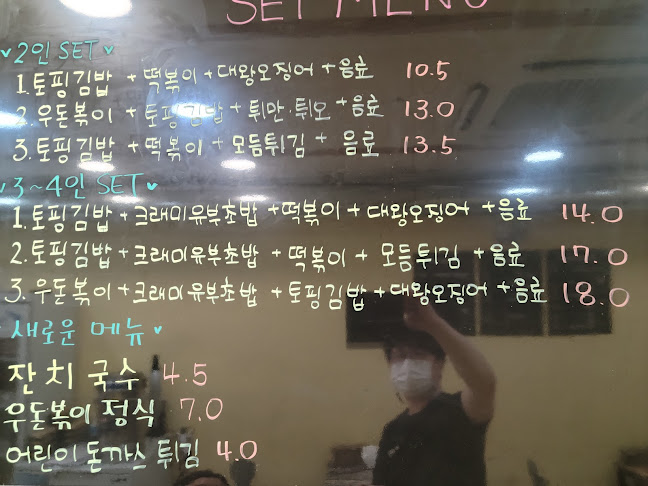 SET MENU
♥2인 SET♥
1.토핑김밥 + 떡볶이 + 대왕오징어 + 음료 10.5
2.우돈볶이 + 토핑김밥 + 튀만·튀오 + 음료 13.0
3.토핑김밥 + 떡볶이 + 모듬튀김 + 음료 13.5
♥3~4인 SET♥
1.토핑김밥 + 크래미유부초밥 + 떡볶이 + 대왕오징어 + 음료 14.0
2.토핑김밥 + 크래미유부초밥 + 떡볶이 + 모듬튀김 + 음료 17.0
3.우돈볶이 + 크래미유부초밥 + 토핑김밥 + 대왕오징어 + 음료 18.0
새로운 메뉴♥
잔치국수 4.5
우돈볶이 정식 7.0
어린이 돈까스 튀김 4.0